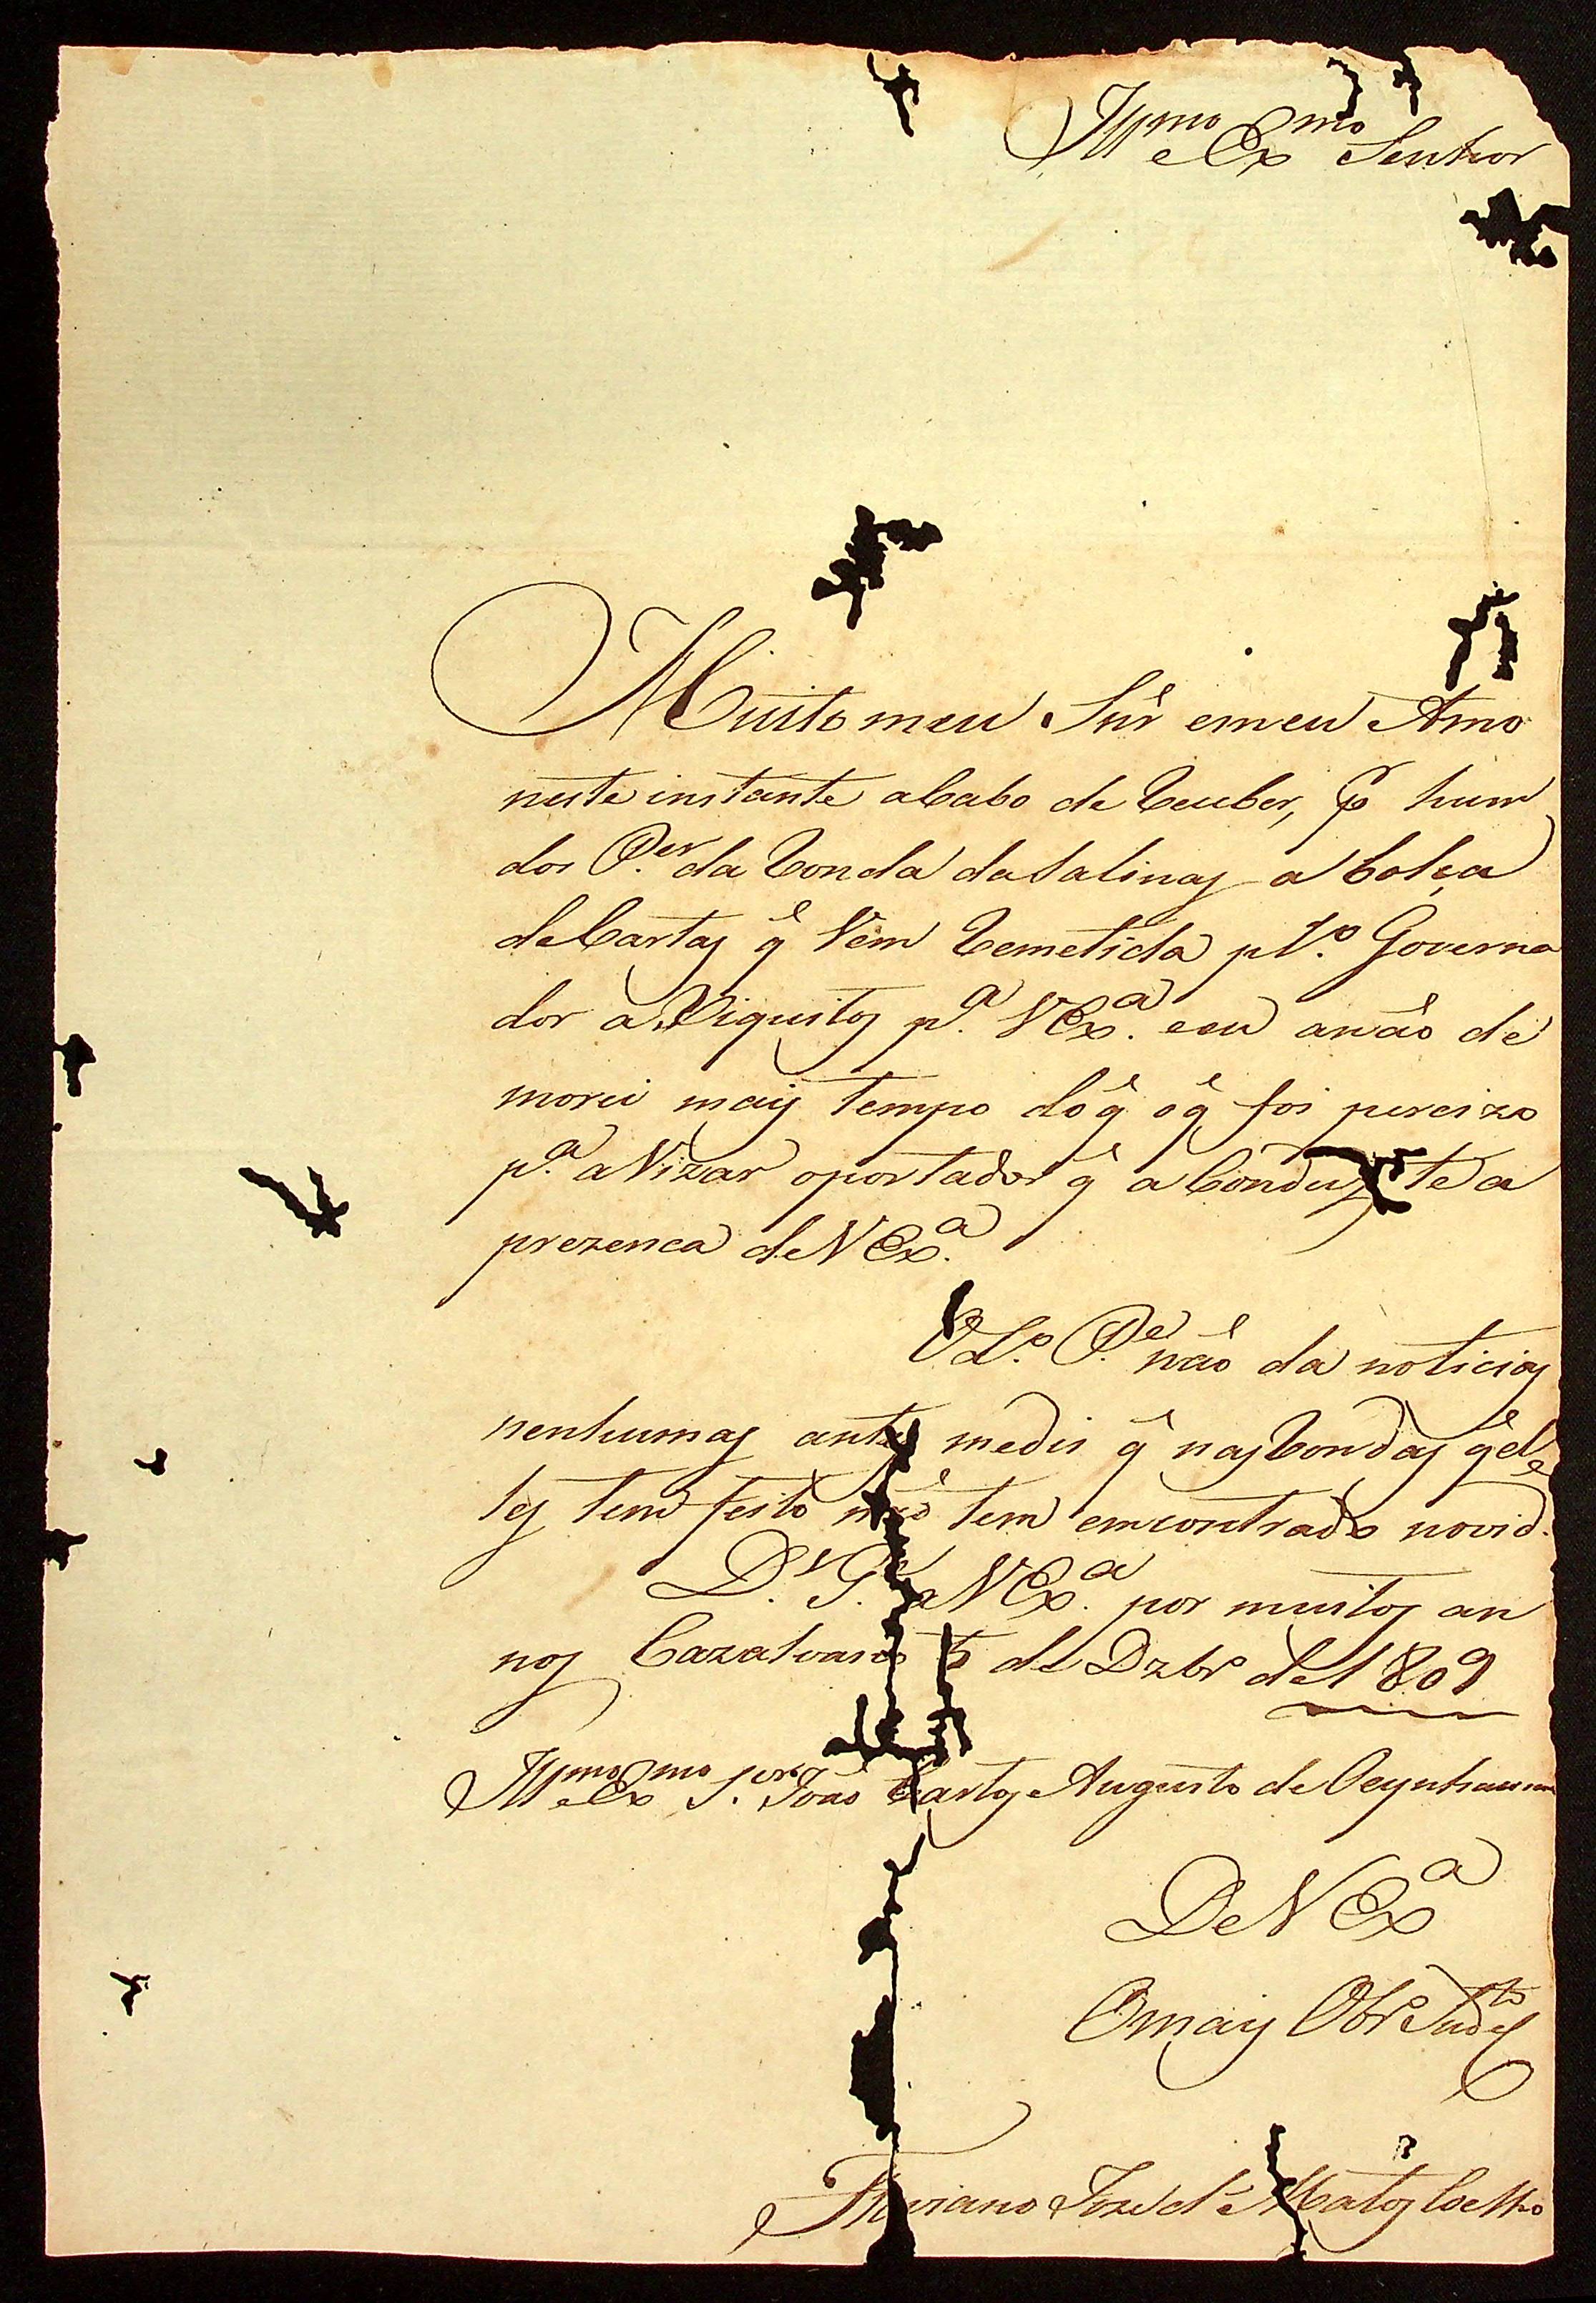 Illmo e Exmo Senhor
Muito meu Snr̃ emeu Amo
neste instante aCabo de Receber, por hum
dos Per. da Ronda daSalinas a bolça
deCartas q̃ Vem Remetida plo. Governa
dor a Xiquitos pa. VExa. eeu anaõ de
morei mais tempo doq̃ oq̃ foi percizo
pa. aVizar oportador q̃ a Conduz te a
prezenca deVExa.
O Do. Pe. naõ da noticias
nenhumas antes medis q̃ nasRondas q̃el
les tem feito naõ tem emcontrado novide.
Ds. Ge. aVExa. por muitos an
nos Cazalvasco 5 de Dzbro de1809
Illmo e Exmo Snr. Joaõ Carlos Augusto de Oeynhausen
DeVExa
Omais Obro Sudto
Floriano Joze de Mattos Coelho